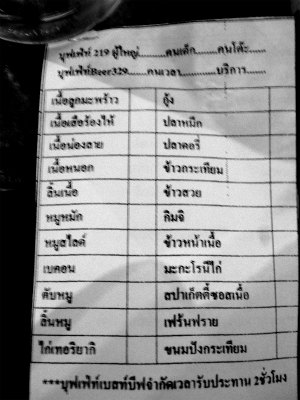 บุฟเฟ่ท์ 219 ผู้ใหญ่..........คนเด็ก.........คนโต๊ะ......
บุฟเฟ่ท์Beer329.......คนเวลา..............บริการ.......
เนื้อลูกมะพร้าว กุ้ง
เนื้อเสือร้องไห้ ปลาหมึก
เนื้อน่องลาย ปลาดอรี่
เนื้อหนอก ข้าวกระเทียม
ลิ้นเนื้อ ข้าวสวย
หมูหมัก กิมจิ
หมูสไลด์ ข้าวหน้าเนื้อ
เบคอน มะกะโรนีไก่
ตับหมู สปาเก็ตตี้ซอสเนื้อ
ลิ้นหมู เฟร้นฟราย
ไก่เทอริยากิ ขนมปังกระเทียม
***บุฟเฟ่ท์เบสท์บีฟจำกัดเวลารับประทาน 2ชั่วโมง